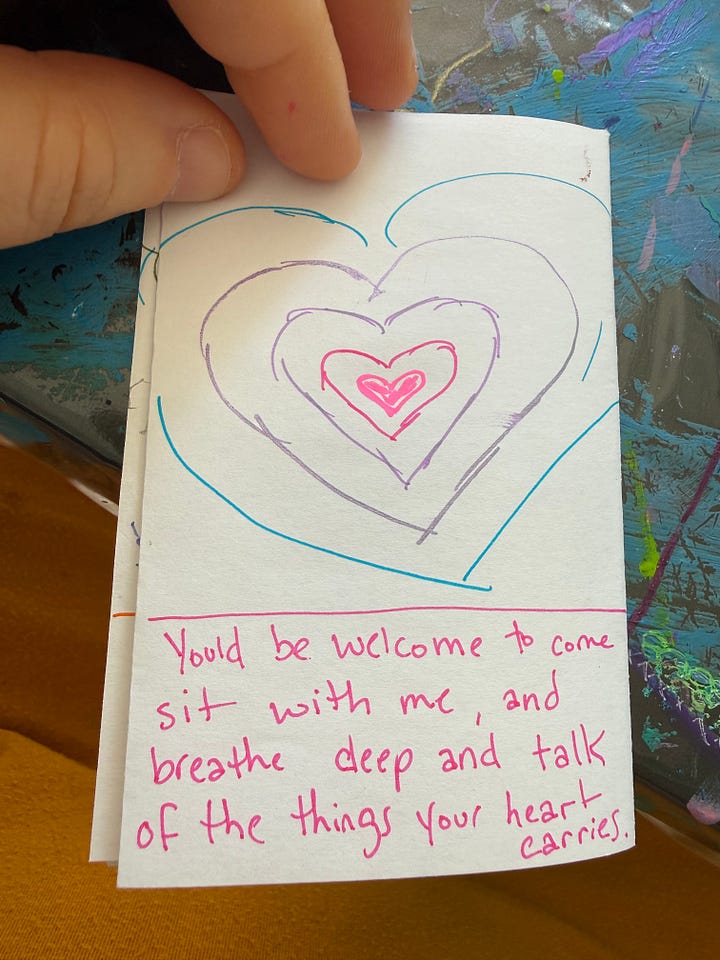 Yould be welcome to come
sit with me, and
breathe deep and talk
of the things your heart
carries.